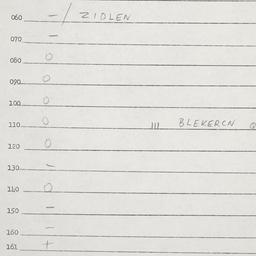 060 — / ZIDLEN
070 —
080 O
090 O
100 O
110 O III BLEKERCN
120 O
130 —
140 O
150 —
160 —
161 +